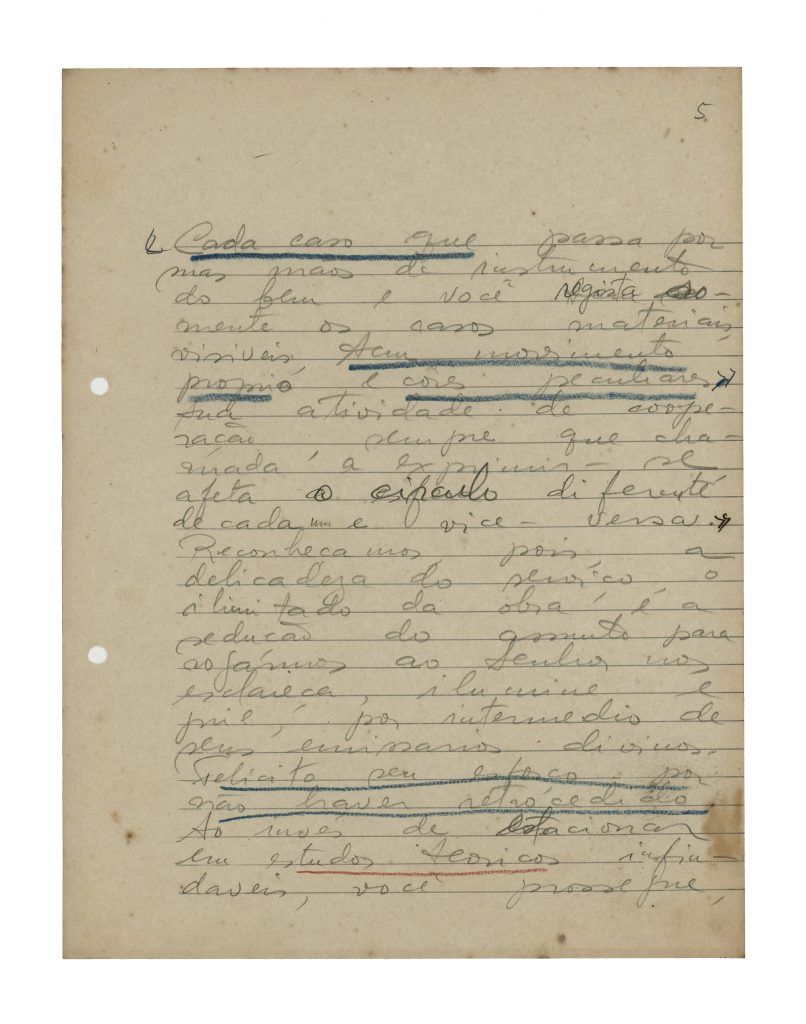 5.
Cada caso que passa por
mas mãos de instrumento
do bem e você regista so-
mente os casos materiais,
visiveis, tem movimento
proprio e côres peculiares,
Sua atividade de coope-
ração, sempre que cha-
mada a exprimir-se
afeta o circulo diferente
de cada um e vice-versa.
Reconheçamos, pois, a
delicadeza do serviço, o
ilimitado da obra, e a
sedução do assunto para
rogármos ao Senhor nos
esclareça, ilumine e
guie, por intermedio de
seus emissarios divinos.
Felicito seu esforço por
não haver retrocedido.
Ao invés de estacionar
em estudos teoricos infin-
daveis, você prossegue,